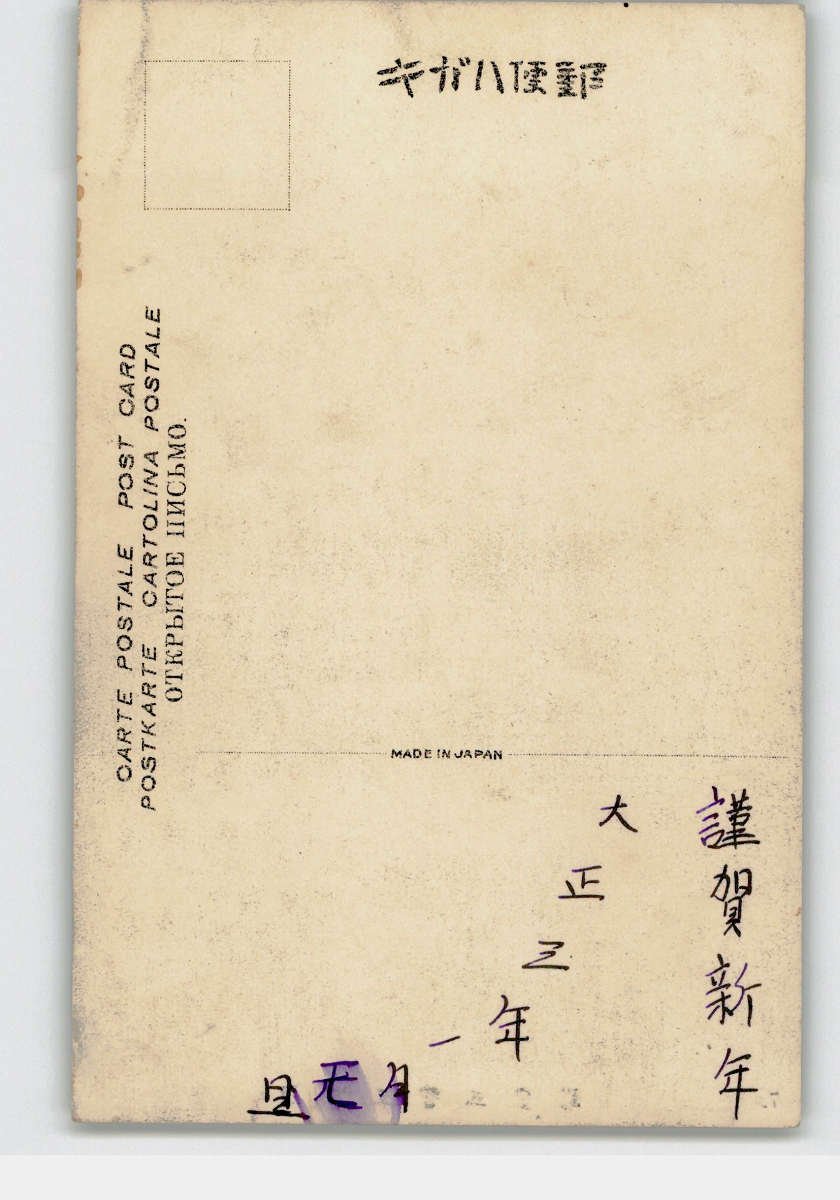 キガハ便郵
CARTE POSTALE POST CARD
POSTKARTE CARTOLINA POSTALE
ОТКРЫТОЕ ПИСЬМО.
MADE IN JAPAN
謹賀新年
大正三年一月元旦